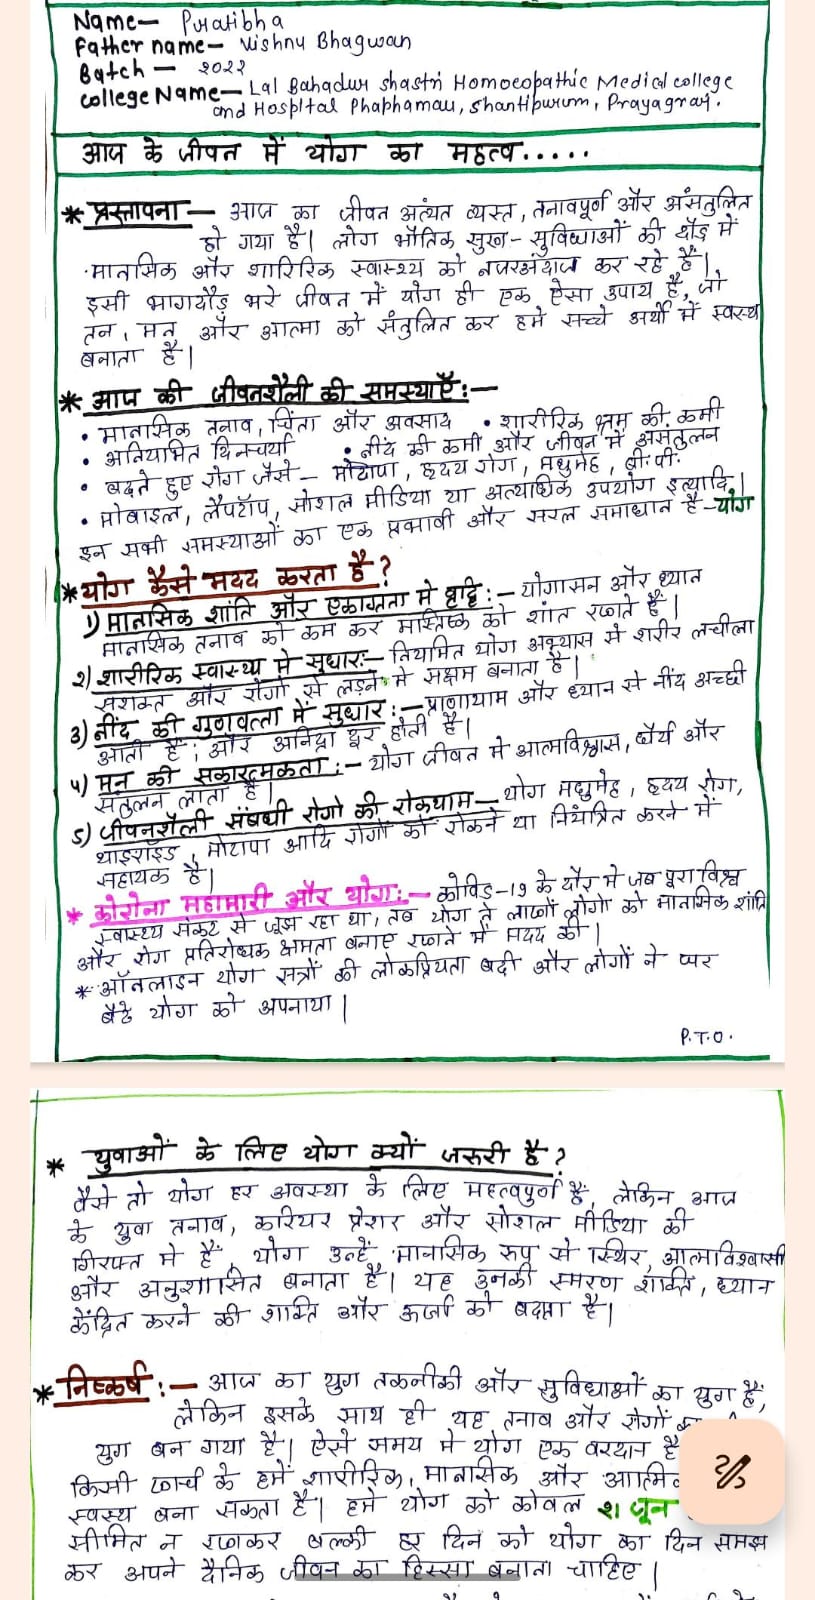 Name— Pratibha
Father name— Vishnu Bhagwan
Batch — २०२२
College Name— Lal Bahadur Shastri Homoeopathic Medical college
and Hospital Phaphamau, Shantipurum, Prayagraj.
आज के जीवन में योग का महत्व.....
* प्रस्तावना — आज का जीवन अत्यंत व्यस्त, तनावपूर्ण और असंतुलित
हो गया है। लोग भौतिक सुख-सुविधाओं की दौड़ में
मानसिक और शारिरिक स्वास्थ्य को नजरअंदाज कर रहे हैं।
इसी भागदौड़ भरे जीवन में योग ही एक ऐसा उपाय है, जो
तन, मन और आत्मा को संतुलित कर हमे सच्चे अर्थो में स्वस्थ
बनाता है।
* आज की जीवनशैली की समस्याएँ:—
• मानसिक तनाव, चिंता और अवसाद • शारीरिक श्रम की कमी
• अनियमित दिनचर्या • नींद की कमी और जीवन में असंतुलन
• बढ़ते हुए रोग जैसे — मोटापा, हृदय रोग, मधुमेह, बी.पी.
• मोबाइल, लैपटॉप, सोशल मीडिया या अत्यधिक उपयोग इत्यादि।
इन सभी समस्याओं का एक प्रभावी और सरल समाधान है—योग
* योग कैसे मदद करता है?
1) मानसिक शांति और एकाग्रता मे वृद्धि:— योगासन और ध्यान
मानसिक तनाव को कम कर मास्तिष्क को शांत रखते है।
२) शारीरिक स्वास्थ्य मे सुधार:— नियमित योग अभ्यास से शरीर लचीला
सशक्त और रोगो से लड़ने मे सक्षम बनाता है।
3) नींद की गुणवत्ता में सुधार:— प्राणायाम और ध्यान से नींद अच्छी
आती है, और अनिद्रा दूर होती है।
४) मन की सकारात्मकता:— योग जीवन मे आत्मविश्वास, धैर्य और
संतुलन लाता है।
5) जीवनशैली संबधी रोगो की रोकथाम— योग मधुमेह, हृदय रोग,
थाइरॉइड, मोटापा आदि रोगों को रोकने या नियंत्रित करने में
सहायक है।
* कोरोना महामारी और योग:— कोविड-19 के दौर मे जब पूरा विश्व
स्वास्थ्य संकट से जूझ रहा था, तब योग ने लाखों लोगो को मानसिक शांति
और रोग प्रतिरोधक क्षमता बनाए रखने में मदद की।
* ऑनलाइन योग सत्रों की लोकप्रियता बढ़ी और लोगों ने घर
बैठे योग को अपनाया।
P.T.O.
* युवाओं के लिए योग क्यों जरुरी है?
वैसे तो योग हर अवस्था के लिए महत्वपुर्ण है, लेकिन आज
के युवा तनाव, करियर प्रेशर और सोशल मीडिया की
गिरफ्त मे हैं, योग उन्हें मानसिक रुप से स्थिर, आत्मविश्वासी
और अनुशासित बनाता है। यह उनकी स्मरण शक्ति, ध्यान
केंद्रित करने की शक्ति और ऊर्जा को बढ़ाता है।
* निष्कर्ष:— आज का युग तकनीकी और सुविधाओं का युग है,
लेकिन इसके साथ ही यह तनाव और रोगों
युग बन गया है। ऐसे समय मे योग एक वरदान है
किसी खर्च के हमें शारीरिक, मानसिक और
स्वस्थ बना सकता है। हमे योग को केवल २१ जून
सीमित न रखकर बल्की हर दिन को योग का दिन समझ
कर अपने दैनिक जीवन का हिस्सा बनाना चाहिए।
2/3